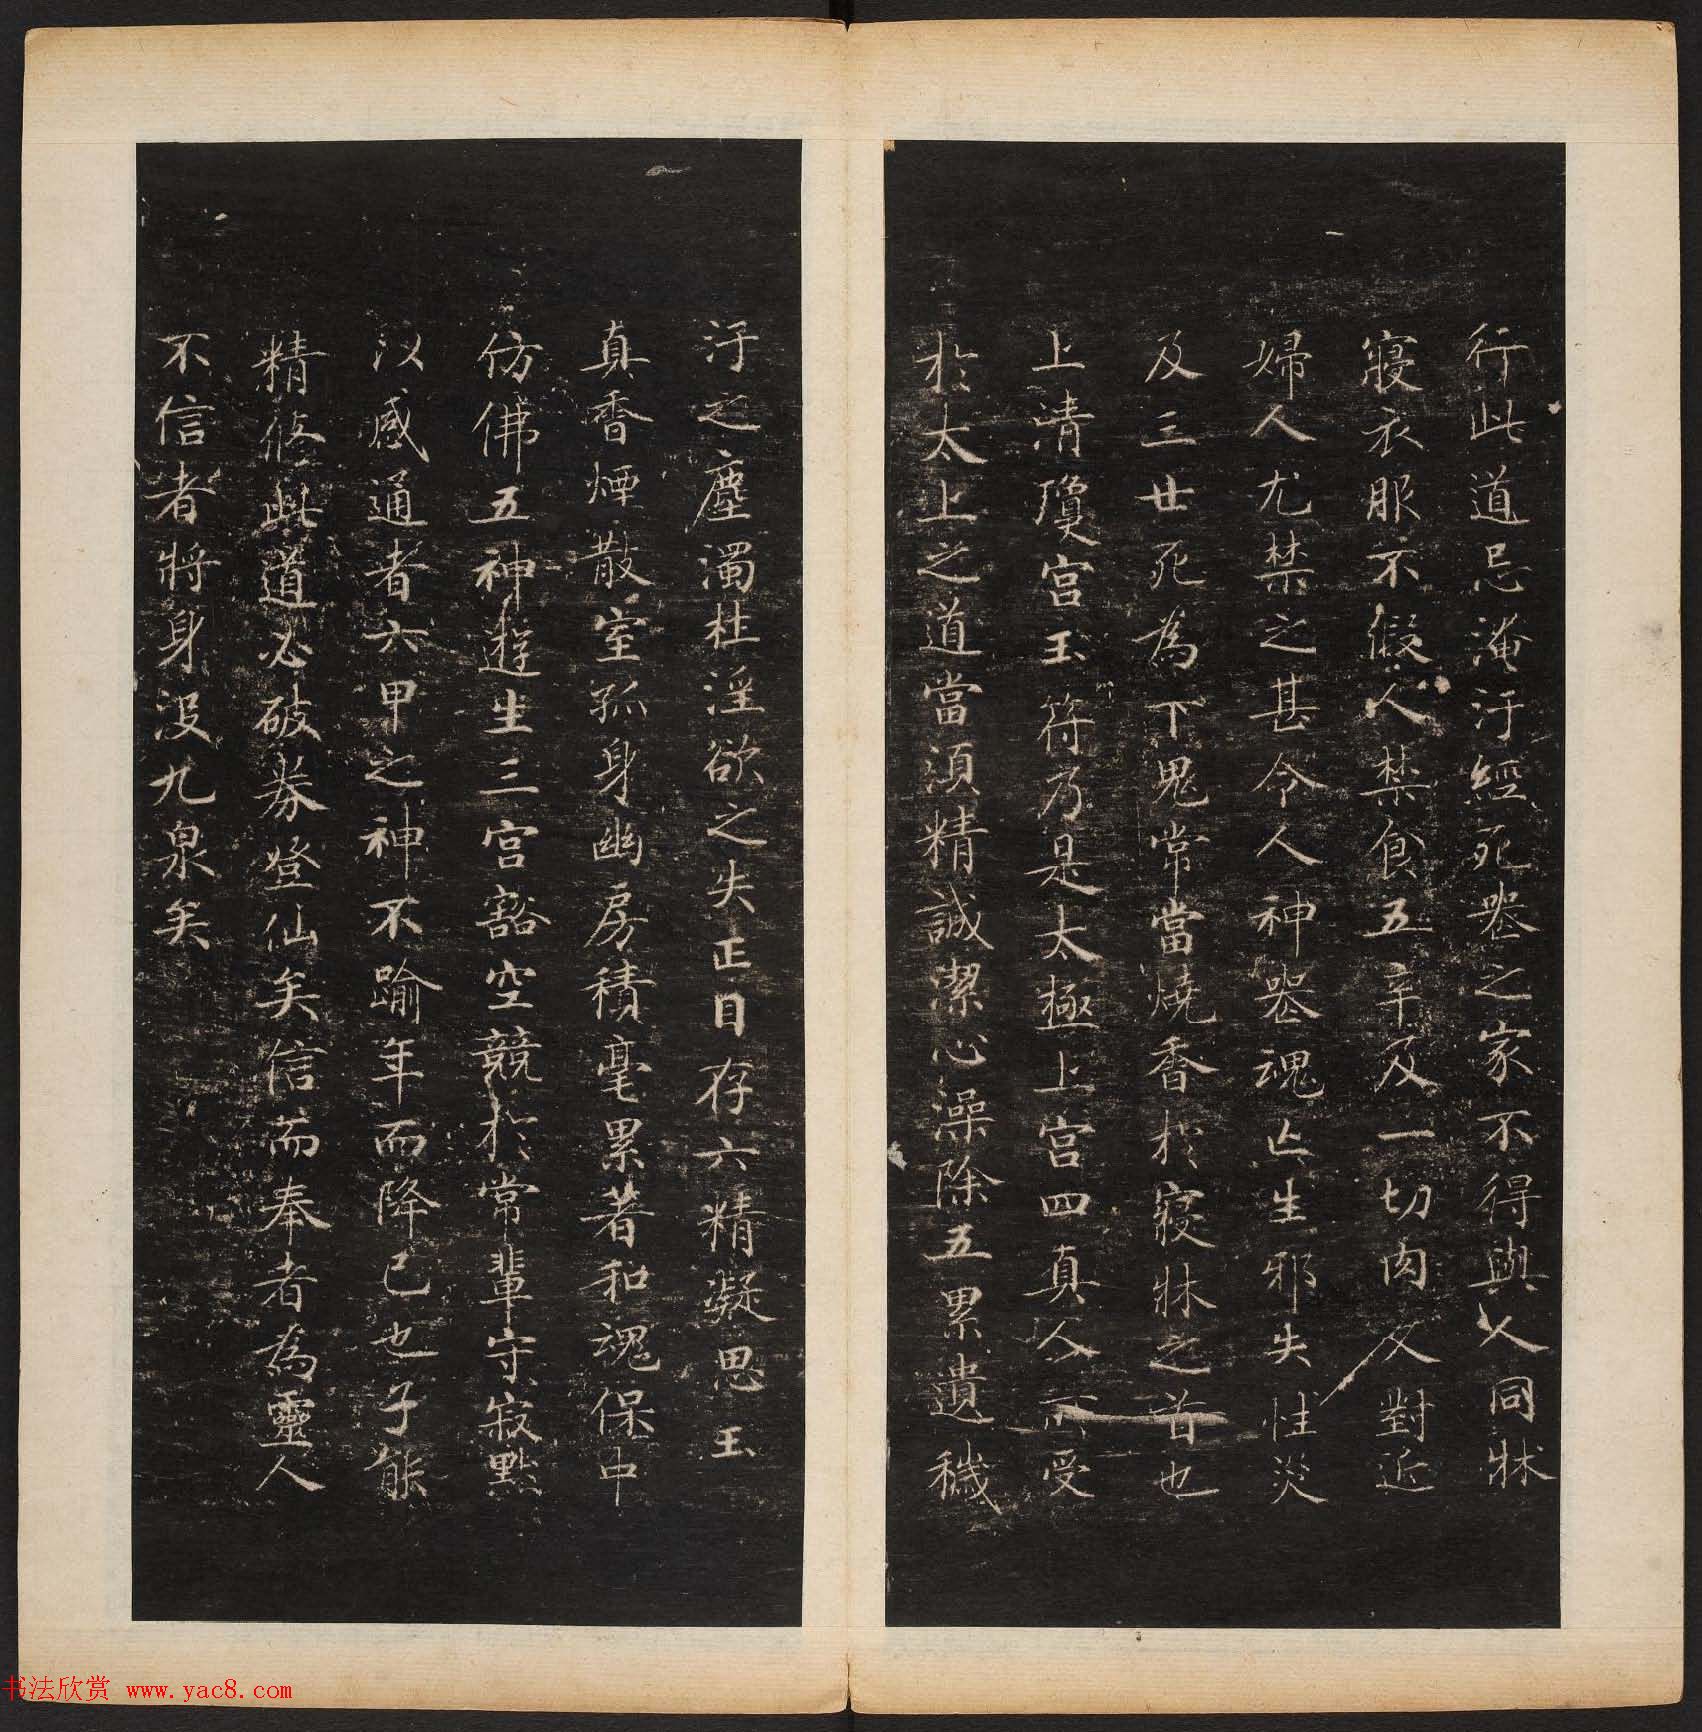 行此道忌淹汙經死喪之家不得與人同牀
寢衣服不假人禁食五辛及一切肉又對近
婦人尤禁之甚令人神喪魂亡生邪失性災
及三世死為下鬼常當燒香於寢牀之首也
上清瓊宮玉符乃是太極上宮四真人所受
於太上之道當須精誠潔心澡除五累遺穢
汙之塵濁杜淫欲之失正目存六精凝思玉
真香煙散室孤身幽房積毫累著和魂保中
仿佛五神遊生三宮豁空競於常輩守寂默
以感通者六甲之神不踰年而降已也子能
精修此道必破券登仙矣信而奉者為靈人
不信者將身沒九泉矣
书法欣赏 www.yac8.com